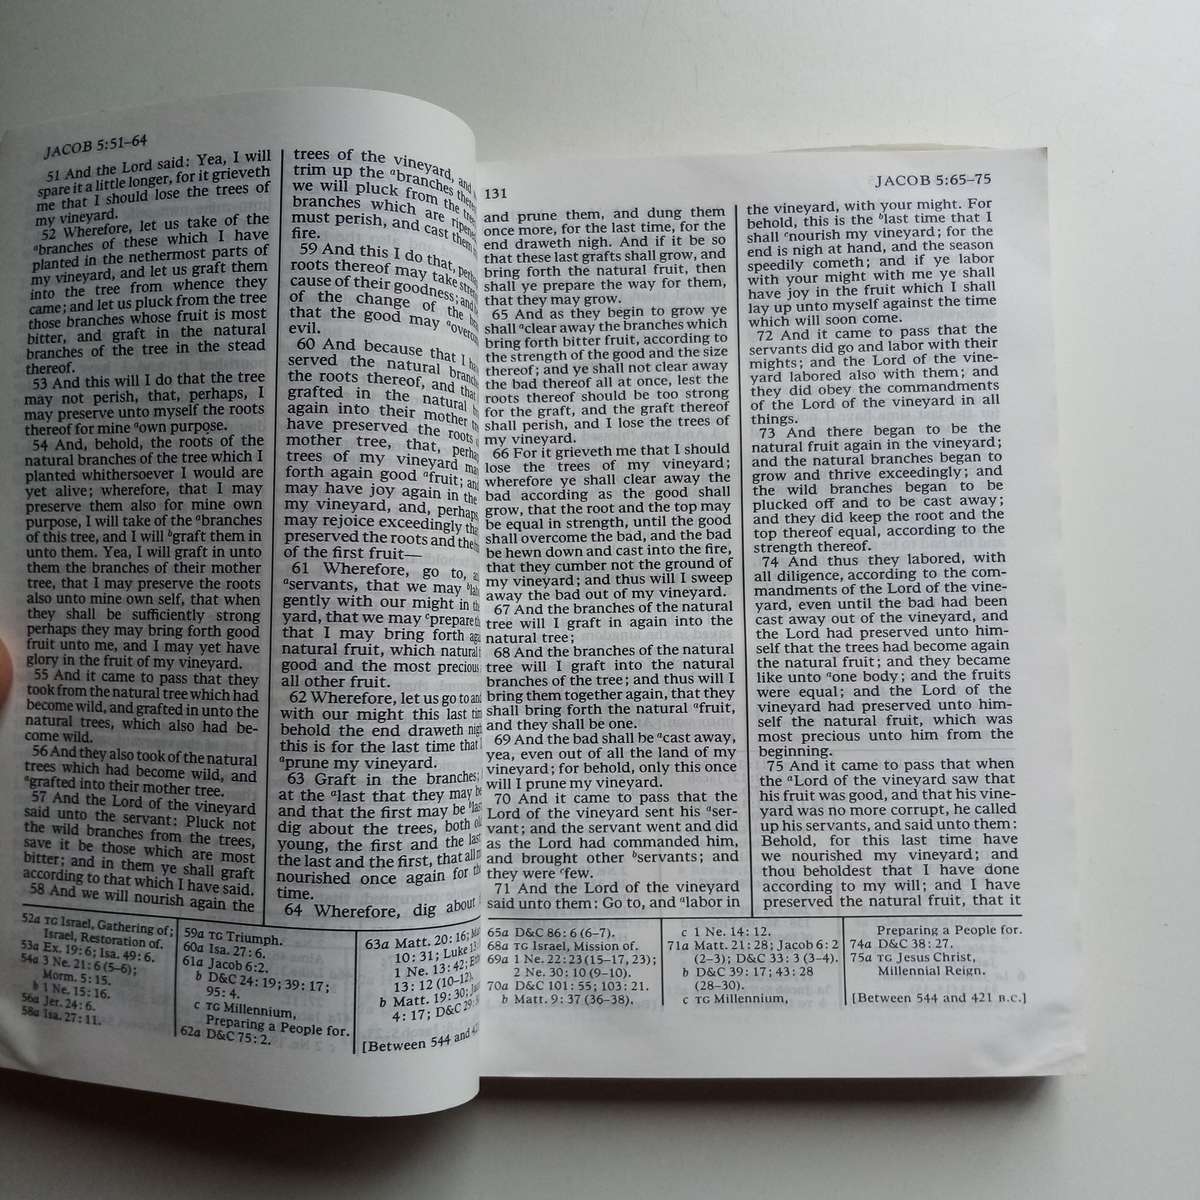 JACOB 5:51–64
51 And the Lord said: Yea, I will
spare it a little longer, for it grieveth
me that I should lose the trees of
my vineyard.
52 Wherefore, let us take of the
ᵃbranches of these which I have
planted in the nethermost parts of
my vineyard, and let us graft them
into the tree from whence they
came; and let us pluck from the tree
those branches whose fruit is most
bitter, and graft in the natural
branches of the tree in the stead
thereof.
53 And this will I do that the tree
may not perish, that, perhaps, I
may preserve unto myself the roots
thereof for mine ᵃown purpose.
54 And, behold, the roots of the
natural branches of the tree which I
planted whithersoever I would are
yet alive; wherefore, that I may
preserve them also for mine own
purpose, I will take of the ᵃbranches
of this tree, and I will ᵇgraft them in
unto them. Yea, I will graft in unto
them the branches of their mother
tree, that I may preserve the roots
also unto mine own self, that when
they shall be sufficiently strong
perhaps they may bring forth good
fruit unto me, and I may yet have
glory in the fruit of my vineyard.
55 And it came to pass that they
took from the natural tree which had
become wild, and grafted in unto the
natural trees, which also had be-
come wild.
56 And they also took of the natural
trees which had become wild, and
ᵃgrafted into their mother tree.
57 And the Lord of the vineyard
said unto the servant: Pluck not
the wild branches from the trees,
save it be those which are most
bitter; and in them ye shall graft
according to that which I have said.
58 And we will nourish again the
trees of the vineyard, and
trim up the ᵃbranches
we will pluck from the
branches which are
must perish, and cast them
fire.
59 And this I do that,
roots thereof may take
cause of their goodness; and
of the change of the
that the good may
evil.
60 And because that I
served the natural
the roots thereof, and that
grafted in the natural
again into their mother
have preserved the roots
mother tree, that,
trees of my vineyard
forth again good ᵃfruit; and
may have joy again in the
my vineyard, and, perhaps
may rejoice exceedingly that
preserved the roots and the
of the first fruit—
61 Wherefore, go to,
ᵃservants, that we may
gently with our might in
yard, that we may ᶜprepare
that I may bring forth
natural fruit, which natural
good and the most precious
all other fruit.
62 Wherefore, let us go to and
with our might this last
behold the end draweth
this is for the last time that
ᵃprune my vineyard.
63 Graft in the branches;
at the ᵃlast that they may
and that the first may be
dig about the trees, both
young, the first and the last
the last and the first, that all
nourished once again for
time.
64 Wherefore, dig about
52a TG Israel, Gathering of;
Israel, Restoration of.
53a Ex. 19:6; Isa. 49:6.
54a 3 Ne. 21:6 (5–6);
Morm. 5:15.
b 1 Ne. 15:16.
56a Jer. 24:6.
58a Isa. 27:11.
59a TG Triumph.
60a Isa. 27:6.
61a Jacob 6:2.
b D&C 24:19; 39:17;
95:4.
c TG Millennium,
Preparing a People for.
62a D&C 75:2.
63a Matt. 20:16;
10:31; Luke
1 Ne. 13:42;
13:12 (10–12).
b Matt. 19:30;
4:17; D&C
[Between 544 and
131
JACOB 5:65–75
and prune them, and dung them
once more, for the last time, for the
end draweth nigh. And if it be so
that these last grafts shall grow, and
bring forth the natural fruit, then
shall ye prepare the way for them,
that they may grow.
65 And as they begin to grow ye
shall ᵃclear away the branches which
bring forth bitter fruit, according to
the strength of the good and the size
thereof; and ye shall not clear away
the bad thereof all at once, lest the
roots thereof should be too strong
for the graft, and the graft thereof
shall perish, and I lose the trees of
my vineyard.
66 For it grieveth me that I should
lose the trees of my vineyard;
wherefore ye shall clear away the
bad according as the good shall
grow, that the root and the top may
be equal in strength, until the good
shall overcome the bad, and the bad
be hewn down and cast into the fire,
that they cumber not the ground of
my vineyard; and thus will I sweep
away the bad out of my vineyard.
67 And the branches of the natural
tree will I graft in again into the
natural tree;
68 And the branches of the natural
tree will I graft into the natural
branches of the tree; and thus will I
bring them together again, that they
shall bring forth the natural ᵃfruit,
and they shall be one.
69 And the bad shall be ᵃcast away,
yea, even out of all the land of my
vineyard; for behold, only this once
will I prune my vineyard.
70 And it came to pass that the
Lord of the vineyard sent his ᵃser-
vant; and the servant went and did
as the Lord had commanded him,
and brought other ᵇservants; and
they were ᶜfew.
71 And the Lord of the vineyard
said unto them: Go to, and ᵃlabor in
the vineyard, with your might. For
behold, this is the ᵇlast time that I
shall ᶜnourish my vineyard; for the
end is nigh at hand, and the season
speedily cometh; and if ye labor
with your might with me ye shall
have joy in the fruit which I shall
lay up unto myself against the time
which will soon come.
72 And it came to pass that the
servants did go and labor with their
mights; and the Lord of the vine-
yard labored also with them; and
they did obey the commandments
of the Lord of the vineyard in all
things.
73 And there began to be the
natural fruit again in the vineyard;
and the natural branches began to
grow and thrive exceedingly; and
the wild branches began to be
plucked off and to be cast away;
and they did keep the root and the
top thereof equal, according to the
strength thereof.
74 And thus they labored, with
all diligence, according to the com-
mandments of the Lord of the vine-
yard, even until the bad had been
cast away out of the vineyard, and
the Lord had preserved unto him-
self that the trees had become again
the natural fruit; and they became
like unto ᵃone body; and the fruits
were equal; and the Lord of the
vineyard had preserved unto him-
self the natural fruit, which was
most precious unto him from the
beginning.
75 And it came to pass that when
the ᵃLord of the vineyard saw that
his fruit was good, and that his vine-
yard was no more corrupt, he called
up his servants, and said unto them:
Behold, for this last time have
we nourished my vineyard; and
thou beholdest that I have done
according to my will; and I have
preserved the natural fruit, that it
65a D&C 86:6 (6–7).
68a TG Israel, Mission of.
69a 1 Ne. 22:23 (15–17, 23);
2 Ne. 30:10 (9–10).
70a D&C 101:55; 103:21.
b Matt. 9:37 (36–38).
c 1 Ne. 14:12.
71a Matt. 21:28; Jacob 6:2
(2–3); D&C 33:3 (3–4).
b D&C 39:17; 43:28
(28–30).
c TG Millennium,
Preparing a People for.
74a D&C 38:27.
75a TG Jesus Christ,
Millennial Reign.
[Between 544 and 421 B.C.]